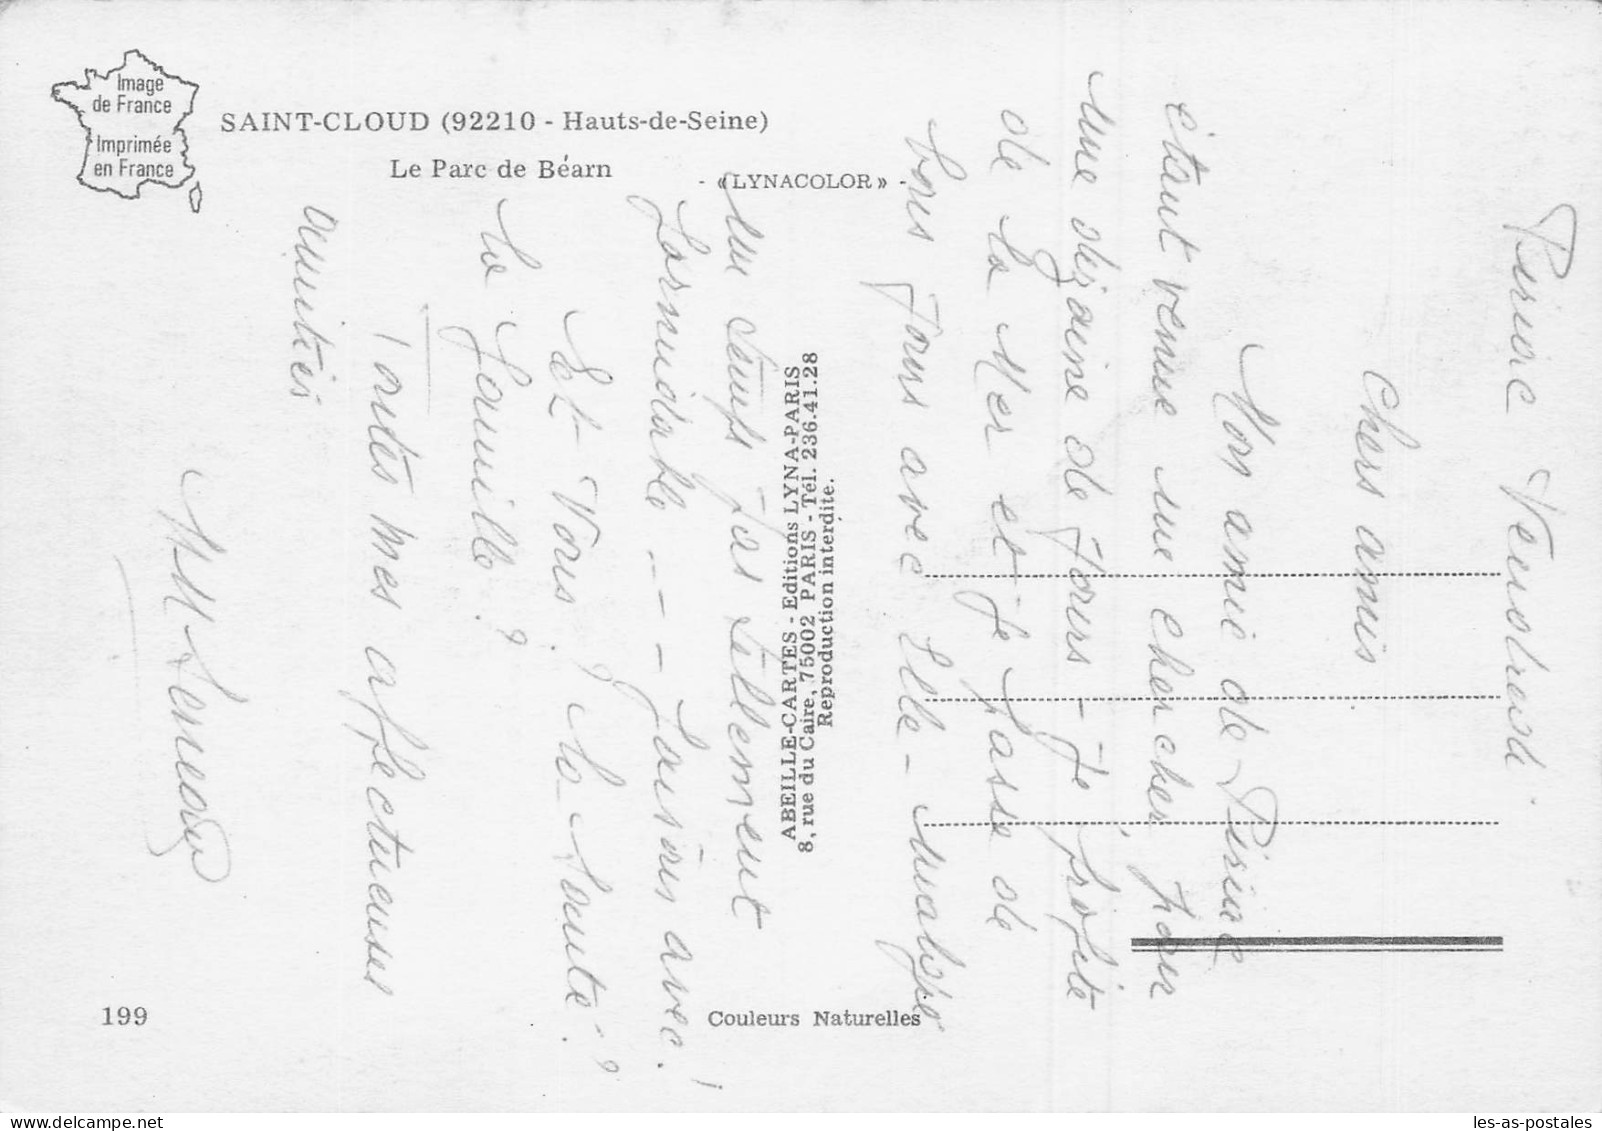 Image
de France
Imprimée
en France
SAINT-CLOUD (92210 - Hauts-de-Seine)
Le Parc de Béarn
- «LYNACOLOR» -
ABEILLE-CARTES - Editions LYNA-PARIS
8, rue du Caire, 75002 PARIS - Tél. 236.41.28
Reproduction interdite.
Piriac Vendredi
Chers amis
Mon amie de Piriac
étant venue me chercher pour
une dizaine de jours - je profite
de la Mer et je passe de
bons jours avec Elle - malgré
un temps pas tellement
formidable --- faisons avec !
Et Vous ? La Santé ?
la famille ?
Toutes mes affectueuses
amitiés
199
Couleurs Naturelles
les-as-postales